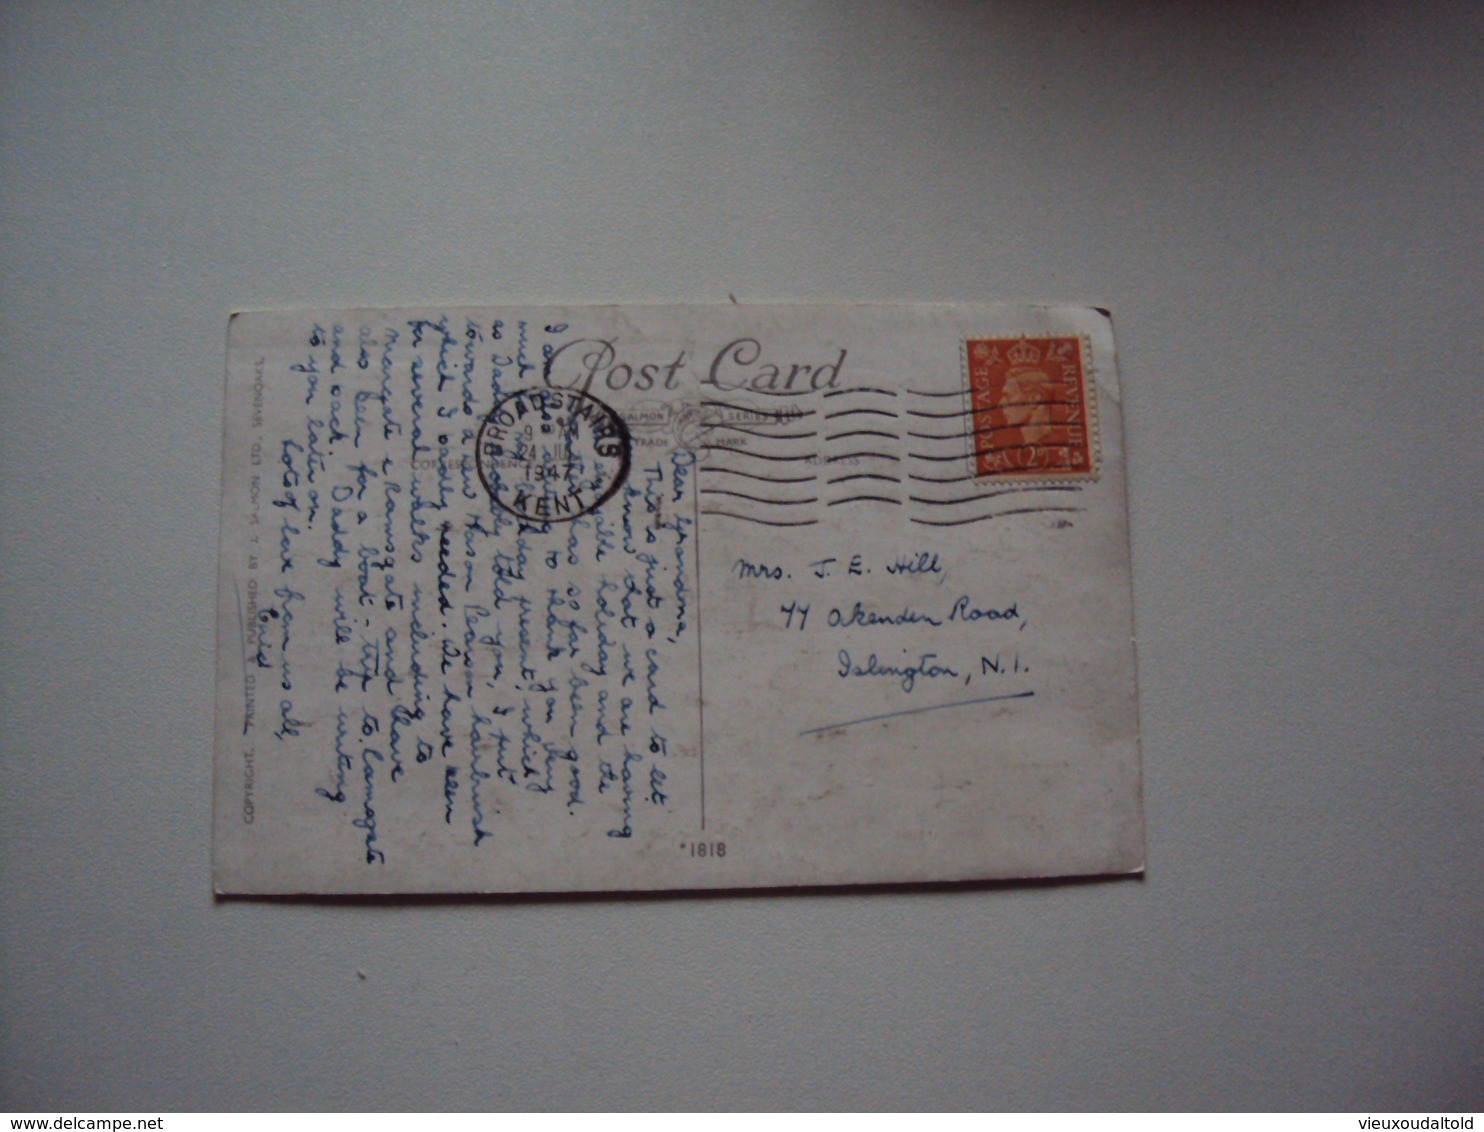 Post Card
SALMON SERIES
TRADE MARK
CORRESPONDENCE
ADDRESS
BROADSTAIRS
24 JUN
1947
KENT
POSTAGE REVENUE
2D
Dear Grandma,
This is just a card to let
know that we are having
holiday and the
has so far been good.
I am also to thank you very
much for my birthday present, which
as Daddy probably told you, I put
towards a new Mason Pearson hairbrush
which I badly needed. We have been
for several walks including to
Margate & Ramsgate and have
also been for a boat-trip to Ramsgate
and back. Daddy will be writing
to you later on.
Lots of love from us all,
Enid
Mrs. J. E. Hill,
77 Oakenden Road,
Islington, N.1.
*1818
COPYRIGHT. PRINTED & PUBLISHED BY J. SALMON LTD., SEVENOAKS.
vieuxoudaltold